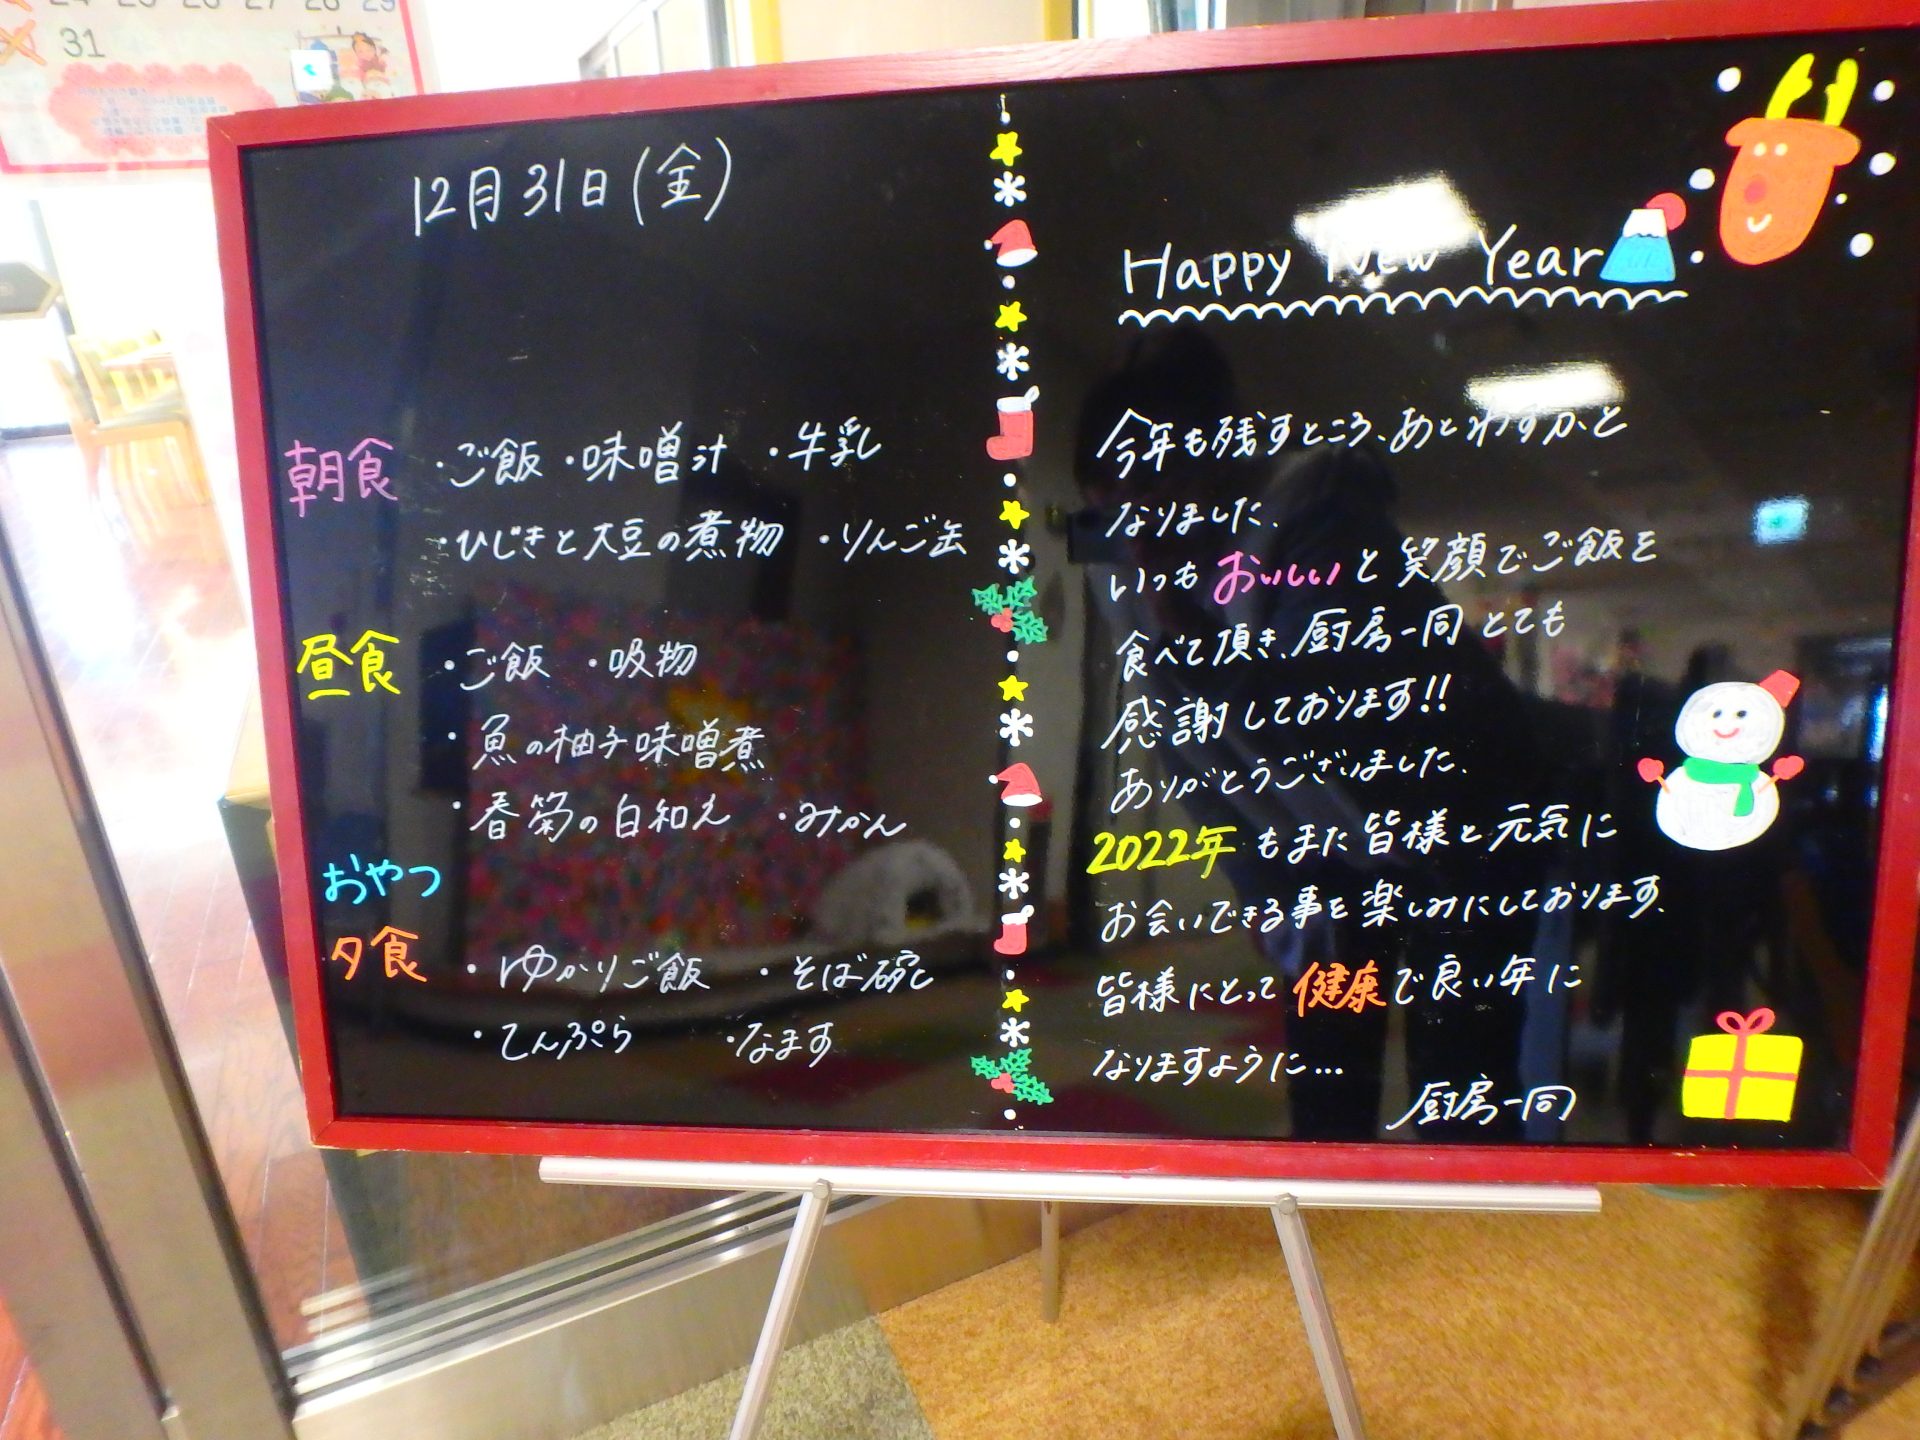 24 25 26 27 28 29
31
12月31日(金)
朝食 ・ご飯 ・味噌汁 ・牛乳
・ひじきと大豆の煮物 ・りんご缶
昼食 ・ご飯 ・吸物
・魚の柚子味噌煮
・春菊の白和え ・みかん
おやつ
夕食 ・ゆかりご飯 ・そば碗
・てんぷら ・なます
Happy New Year
今年も残すところ、あとわずかと
なりました。
いつもおいしいと笑顔でご飯を
食べて頂き、厨房一同とても
感謝しております!!
ありがとうございました。
2022年もまた皆様と元気に
お会いできる事を楽しみにしております。
皆様にとって健康で良い年に
なりますように…
厨房一同